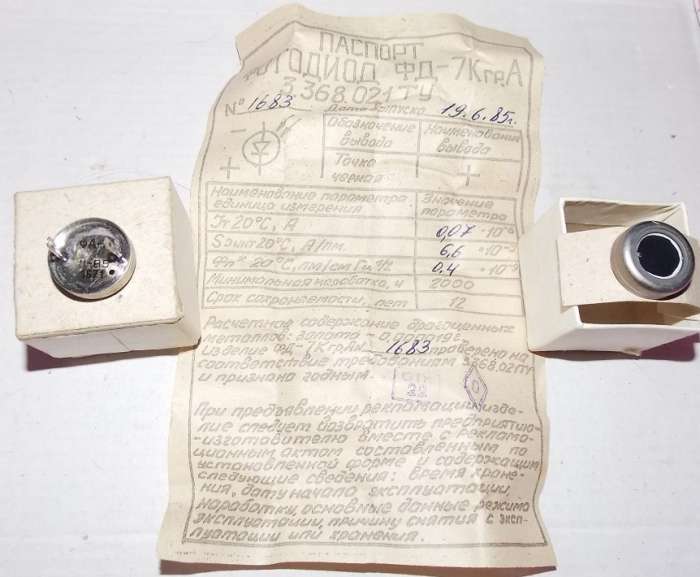 ПАСПОРТ
ФОТОДИОД ФД-7К гр.А
3.368.021 ТУ
№ 1683 Дата выпуска 19.6.85г.
Обозначение вывода
Наименование вывода
-
+
Точка черная
+
Наименование параметра, единица измерения
Значение параметра
Iт 20°С, А
0,07 ·10⁻⁶
20°С, А/лм.
6,6
20°С, лм/см Гц 1/2
0.4
Минимальная наработка, ч 2000
Срок сохраняемости, лет 12
Расчетное содержание драгоценных
металлов: золото - 0,
изделие ФД-7К гр.А № 1683 проверено на
соответствие требованиям 3.368.021ТУ
и признана годным.
ОТК
22
При предъявлении рекламации, изде-
лие следует возвратить предприятию-
-изготовителю вместе с рекла­ма-
ционным актом составленным по
установленной форме и содержащим
следующие сведения: время хране-
ния, дату начала эксплуатации,
наработку, основные данные режима
эксплуатации, причину снятия с эксп-
луатации или хранения.
ФД-